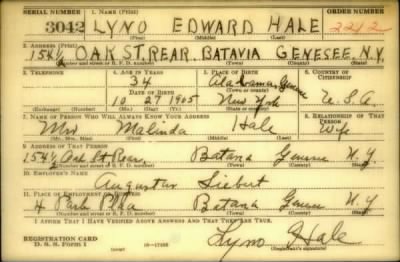 SERIAL NUMBER 1. NAME (Print) ORDER NUMBER
3042 LYNO EDWARD HALE 2212
(First) (Middle) (Last)
2. ADDRESS (Print)
154½ OAK ST. REAR. BATAVIA GENESEE, N.Y.
(Number and street or R. F. D. number) (Town) (County) (State)
3. TELEPHONE 4. AGE IN YEARS 5. PLACE OF BIRTH 6. COUNTRY OF CITIZENSHIP
34 Alabama, Genesee
DATE OF BIRTH (Town or county)
10 27 1905 New York U.S.A.
(Exchange) (Number) (Mo.) (Day) (Yr.) (State or country)
7. NAME OF PERSON WHO WILL ALWAYS KNOW YOUR ADDRESS 8. RELATIONSHIP OF THAT PERSON
Mrs Malinda Hale Wife
(Mr., Mrs., Miss) (First) (Middle) (Last)
9. ADDRESS OF THAT PERSON
154½ Oak St. Rear. Batavia Genesee N.Y.
(Number and street or R. F. D. number) (Town) (County) (State)
10. EMPLOYER'S NAME
Augustus Siebert
11. PLACE OF EMPLOYMENT OR BUSINESS
4 Park Batavia Genesee N.Y
(Number and street or R. F. D. number) (Town) (County) (State)
I AFFIRM THAT I HAVE VERIFIED ABOVE ANSWERS AND THAT THEY ARE TRUE.
REGISTRATION CARD
D. S. S. Form 1 Lyno Hale
(Registrant's signature)